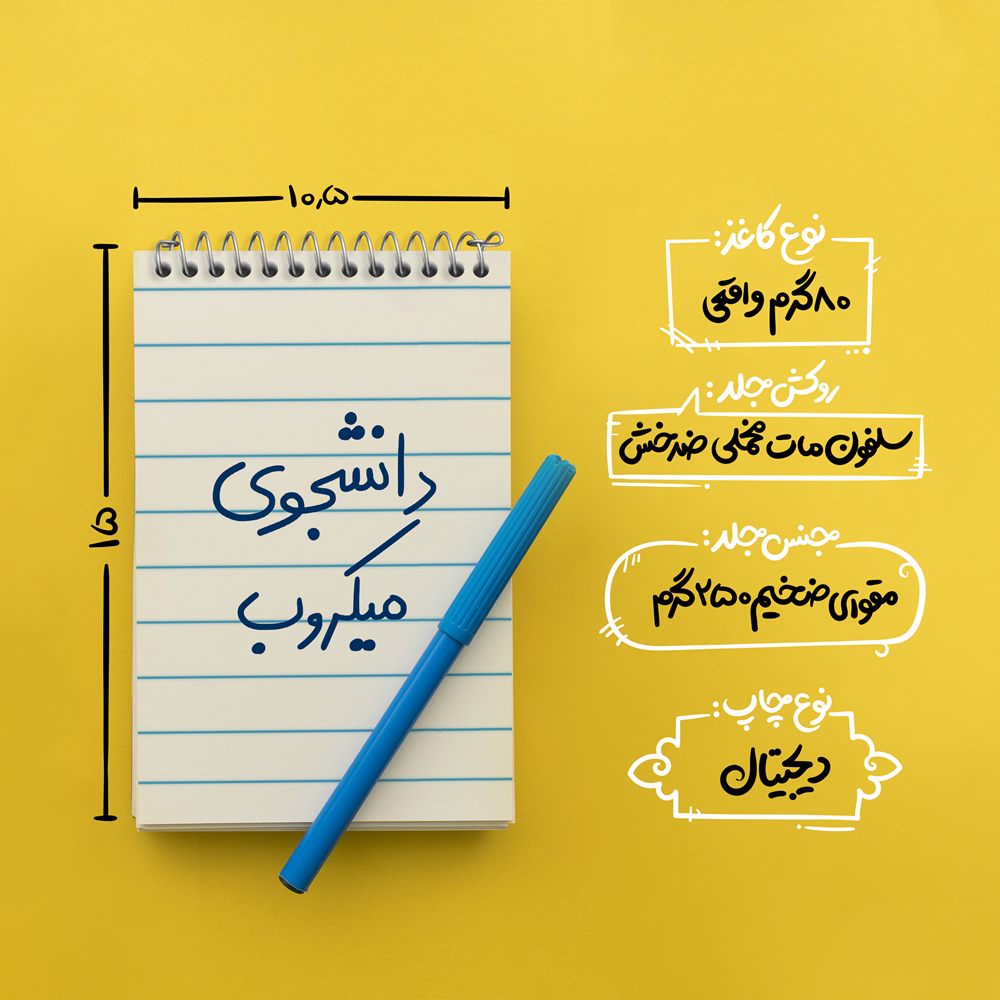 ۱۰٫۵
۱۵
دانشجوی
میکروب
نوع کاغذ:
۸۰ گرم واقعی
روکش جلد:
سلفون مات مخملی ضدخش
جنس جلد:
مقوای ضخیم ۲۵۰ گرم
نوع چاپ:
دیجیتال